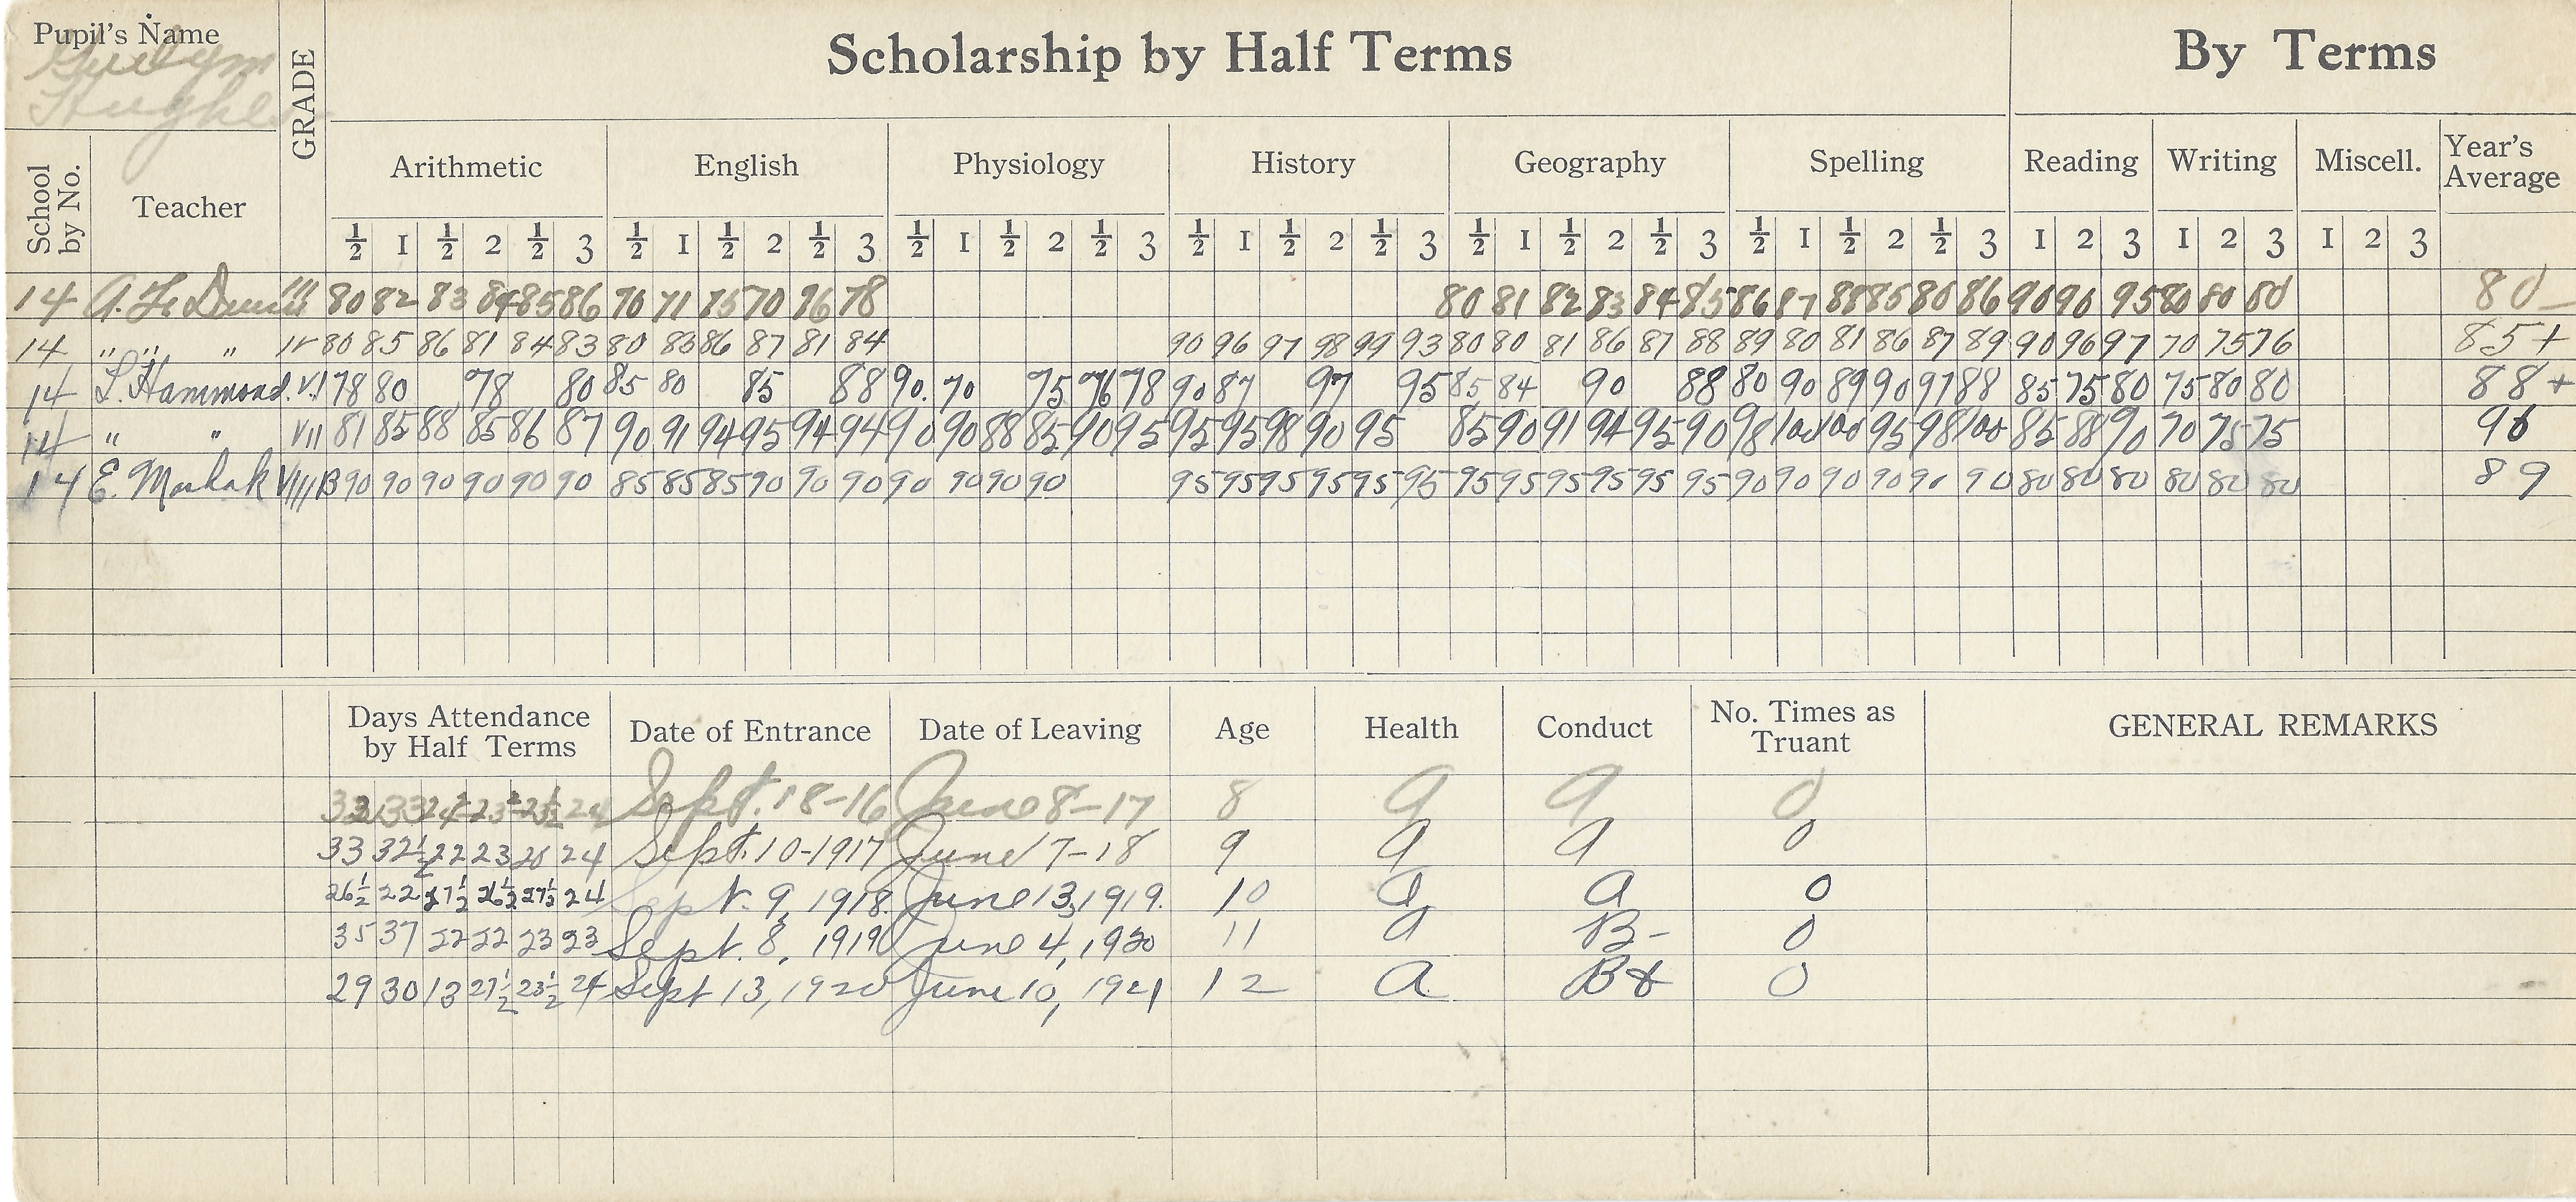 Pupil's Name
Hughes
GRADE
Scholarship by Half Terms
By Terms
School by No.
Teacher
Arithmetic English Physiology History Geography Spelling Reading Writing Miscell. Year's Average
½ 1 ½ 2 ½ 3 ½ 1 ½ 2 ½ 3 ½ 1 ½ 2 ½ 3 ½ 1 ½ 2 ½ 3 ½ 1 ½ 2 ½ 3 ½ 1 ½ 2 ½ 3 1 2 3 1 2 3 1 2 3
14 III 80 82 83 84 85 86 70 71 75 70 76 78 80 81 82 83 84 85 86 87 88 85 80 86 90 90 95 80 80 80 80-
14 " " " IV 80 85 86 81 84 83 80 83 86 87 81 84 90 96 97 98 99 93 80 80 81 86 87 88 89 80 81 86 87 89 90 96 97 70 75 76 85+
14 L. Hammond. VI 78 80 78 80 85 80 85 88 90. 70 75 76 78 90 87 97 95 85 84 90 88 80 90 89 90 97 88 85 75 80 75 80 80 88+
14 " " VII 81 85 88 85 86 87 90 91 94 95 94 94 90 90 88 85 90 95 95 95 98 90 95 85 90 91 94 95 90 98 100 100 95 98 100 85 88 90 70 75 75 90
14 E. VIII B 90 90 90 90 90 90 85 85 85 90 90 90 90 90 90 90 95 95 95 95 95 95 95 95 95 95 95 95 90 90 90 90 90 90 80 80 80 80 80 80 89
Days Attendance by Half Terms
Date of Entrance Date of Leaving Age Health Conduct No. Times as Truant GENERAL REMARKS
33 24 Sept. 18-16 June 8-17 8 a a 0
33 32½ 22 23 20 24 Sept. 10-1917 June 7-18 9 a a 0
26½ 22 27½ 26½ 27½ 24 Sept. 9, 1918. June 13, 1919. 10 a a 0
35 37 22 22 23 23 Sept. 8, 1919 June 4, 1920 11 a B- 0
29 30 13 27½ 23½ 24 Sept 13, 1920 June 10, 1921 12 a B+ 0